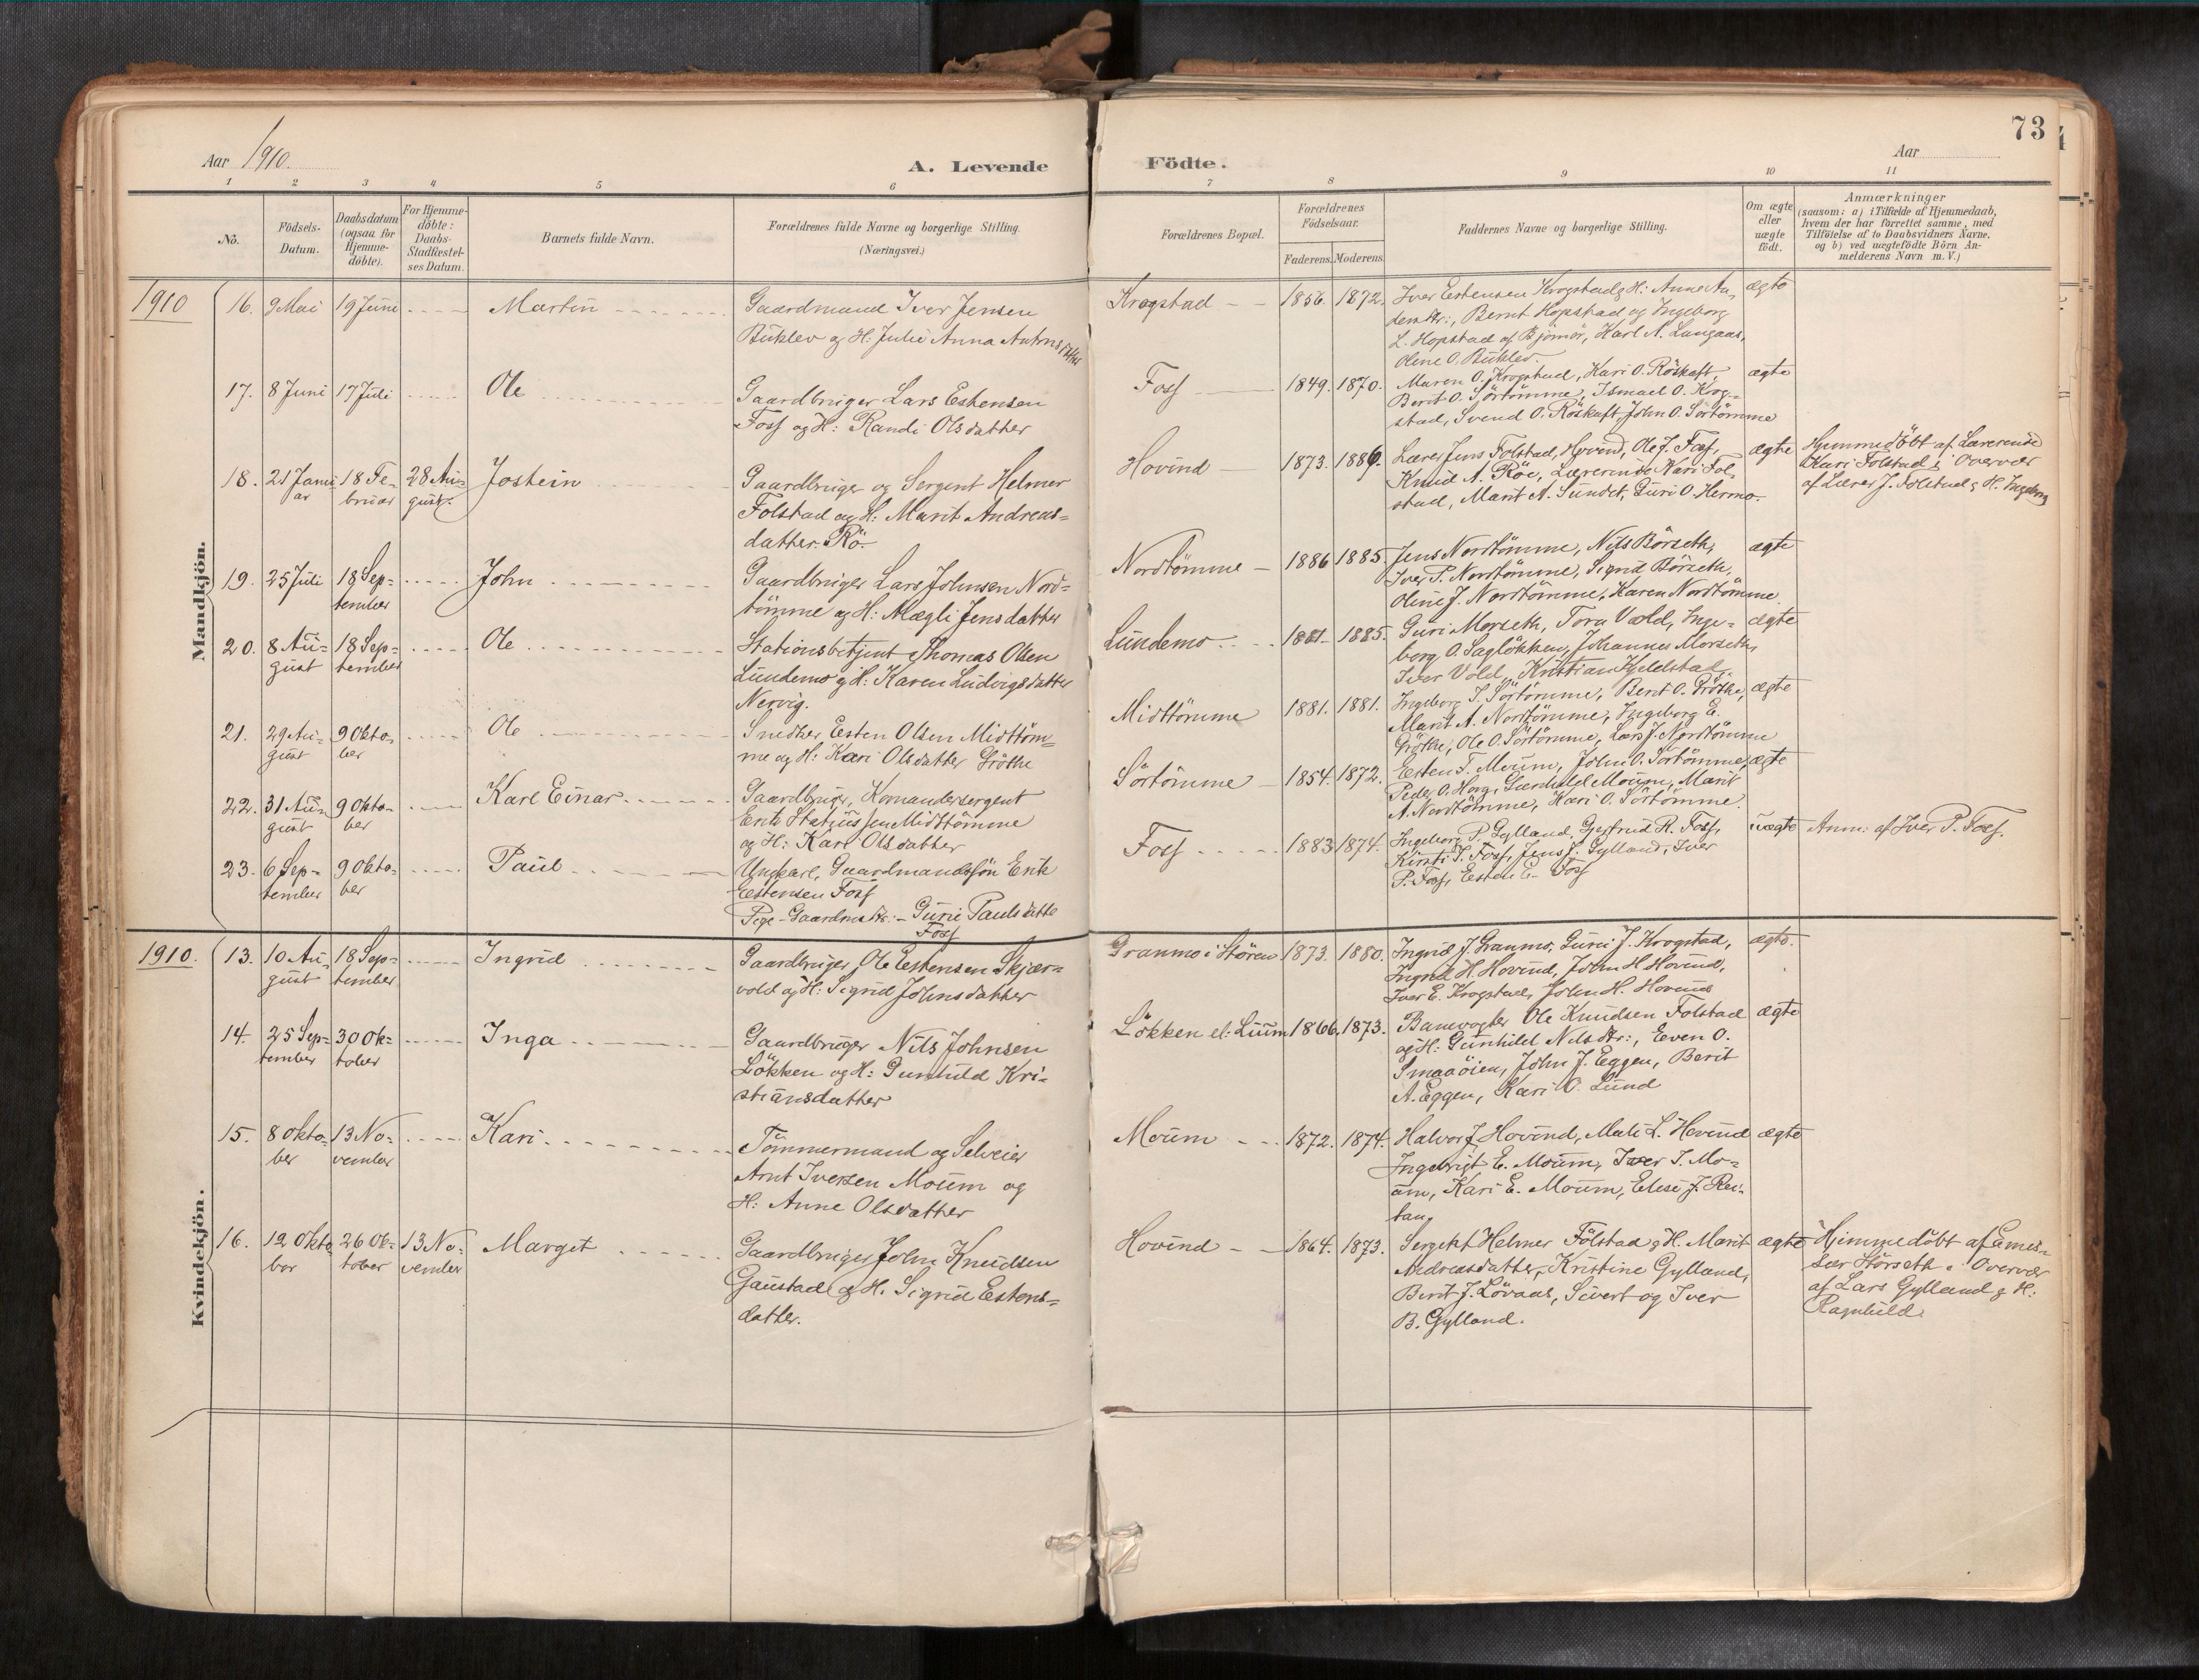 73
Aar 1910.
A. Levende
Födte.
Aar
1 2 3 4 5 6 7 8 9 10 11
No.
Födsels-
Datum.
Daabsdatum
(ogsaa for
Hjemme-
döbte).
For Hjemme-
döbte:
Daabs-
Stadfæstel-
ses Datum.
Barnets fulde Navn.
Forældrenes fulde Navne og borgerlige Stilling.
(Næringsvei.)
Forældrenes Bopæl.
Forældrenes
Födselsaar.
Faderens. Moderens.
Faddernes Navne og borgerlige Stilling.
Om ægte
eller
uægte
födt.
Anmærkninger
(saasom: a) i Tilfælde af Hjemmedaab,
hvem der har forrettet samme, med
Tilföielse af to Daabsvidners Navne.
og b) ved uægtefödte Börn An-
melderens Navn m. V.)
Mandkjön.
1910
16. 9 Mai 19 Juni Martin
Gaardmand Iver Jensen
Buklev og H: Julie Anna Antonsdatter
Kragstad 1856. 1872.
Iver Estensen Krogstad g H: Anne An-
dersdtr:, Bernt Hopstad og Ingeborg
L. Hopstad af Bjørnør, Karl A. Langaas,
Oline O. Buklev.
ægte
17. 8 Juni 17 Juli Ole
Gaardbruger Lars Estensen
Foss og H: Randi Olsdatter
Foss 1849. 1870.
Maren O. Krogstad, Kari O. Röskaft,
Berit O. Sörtömme, Ismael O. Krog-
stad, Svend O. Röskaft, John O. Sörtömme
ægte
18. 21 Janu-
ar
18 Fe-
bruar
28 Au-
gust.
Jostein
Gaardbruger og Sergent Helmer
Folstad og H: Marit Andreas-
datter Rö.
Hovind 1873. 1886.
Lærer Jens Folstad, Hovind, Ole J. Foss,
Knud A. Röe, Lærerinde Kari Fol-
stad, Marit A. Sundet, Guri O. Hermo.
ægte
Hjemmedöbt af Lærerinde
Kari Folstad i Overvær
af Lærer J. Folstad g H. Ingeborg
19. 25 Juli 18 Sep-
tember
John
Gaardbruger Lars Johnsen Nord-
tömme og H: Magli Jensdatter
Nordtömme 1886 1885.
Jens Nordtömme, Nils Börseth,
Iver P. Nordtömme, Sigrid Börseth,
Oline J. Nordtömme, Karen Nordtömme
ægte
20. 8 Au-
gust
18 Sep-
tember
Ole
Stationsbetjent Thomas Olsen
Lundemo g H: Karen Ludvigsdatter
Nervig.
Lundemo 1881. 1885.
Guri Morseth, Tora Vold, Inge-
borg O. Saglökken, Johannes Morseth,
Iver Vold, Kristian Kjeldstad
ægte
21. 29 Au-
gust
9 Okto-
ber
Ole
Snedker Esten Olsen Midttöm-
me og H: Kari Olsdatter Gröthe
Midttömme 1881. 1881.
Ingeborg J. Sörtömme, Berit O. Gröthe,
Marit A. Nordtömme, Ingeborg E.
Gröthe, Ole O. Sörtömme, Lars J. Nordtömme
ægte
22. 31 Au-
gust
9 Okto-
ber
Karl Einar
Gaardbruger, Komandersergent
Erik Statiussen Midttömme
og H: Kari Olsdatter
Sörtömme 1854. 1872.
Esten T. Moum, John O. Sörtömme,
Peder O. Horg, Gunhild Moum, Marit
A. Nordtömme, Kari O. Sörtömme.
ægte
23. 6 Sep-
tember
9 Okto-
ber
Paul
Ungkarl, Gaardmandssön Erik
Estensen Foss
Pige Gaardmdtr: Guri Paulsdatter
Foss
Foss 1883 1874.
Ingeborg P. Gylland, Gjertrud R. Foss,
Kirsti I. Foss, Jens J. Gylland, Iver
P. Foss, Esten E. Foss
uægte
Anm: af Iver P. Foss.
Kvindekjön.
1910.
13. 10 Au-
gust
18 Sep-
tember
Ingrid
Gaardbruger Ole Estensen Skjær-
vold og H: Sigrid Johnsdatter
Granmo i Stören 1873. 1880.
Ingrid J. Granmo, Guri J. Krogstad,
Ingrid H. Hovind, John H Hovind,
Iver E. Krogstad, John H. Hovind
ægte.
14. 25 Sep-
tember
30 Ok-
tober
Inga
Gaardbruger Nils Johnsen
Lökken og H: Gunhild Kri-
stiansdatter
Lökken el: Luum 1866. 1873.
Banevogter Ole Knudsen Folstad
og H: Gunhild Nilsdtr:, Even O.
Smaaöien, John J. Eggen, Berit
A. Eggen, Kari O. Lund
ægte
15. 8 Okto-
ber
13 No-
vember
Kari
Tömmermand og Selveier
Arnt Iversen Moum og
H: Anne Olsdatter
Moum 1872. 1874.
Halvor J. Hovind, Mali L. Hovind
Ingebrigt E. Moum, Iver I. Mo-
um, Kari E. Moum, Elise J. Rei-
tan.
ægte
16. 12 Okto-
ber
26 Ok-
tober
13 No-
vember
Margit
Gaardbruger John Knudsen
Gaustad g H. Sigrid Estens-
datter.
Hovind 1864. 1873.
Sergent Helmer Folstad g H. Marit
Andreasdatter, Kristine Gylland,
Berit J. Lövaas, Sivert og Iver
B. Gylland.
ægte
Hjemmedöbt af Emis-
sær Störseth i Overvær
af Lars Gylland g H.
Ragnhild.